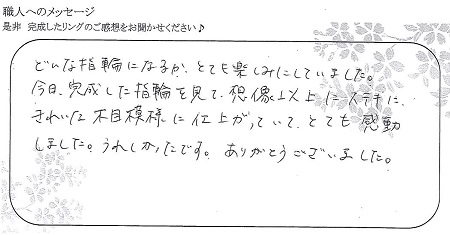 職人へのメッセージ
是非 完成したリングのご感想をお聞かせください♪
どんな指輪になるか、とても楽しみにしていました。
今日、完成した指輪を見て、想像以上にステキに、
きれいな木目模様に仕上がっていて、とても感動
しました。うれしかったです。ありがとうございました。